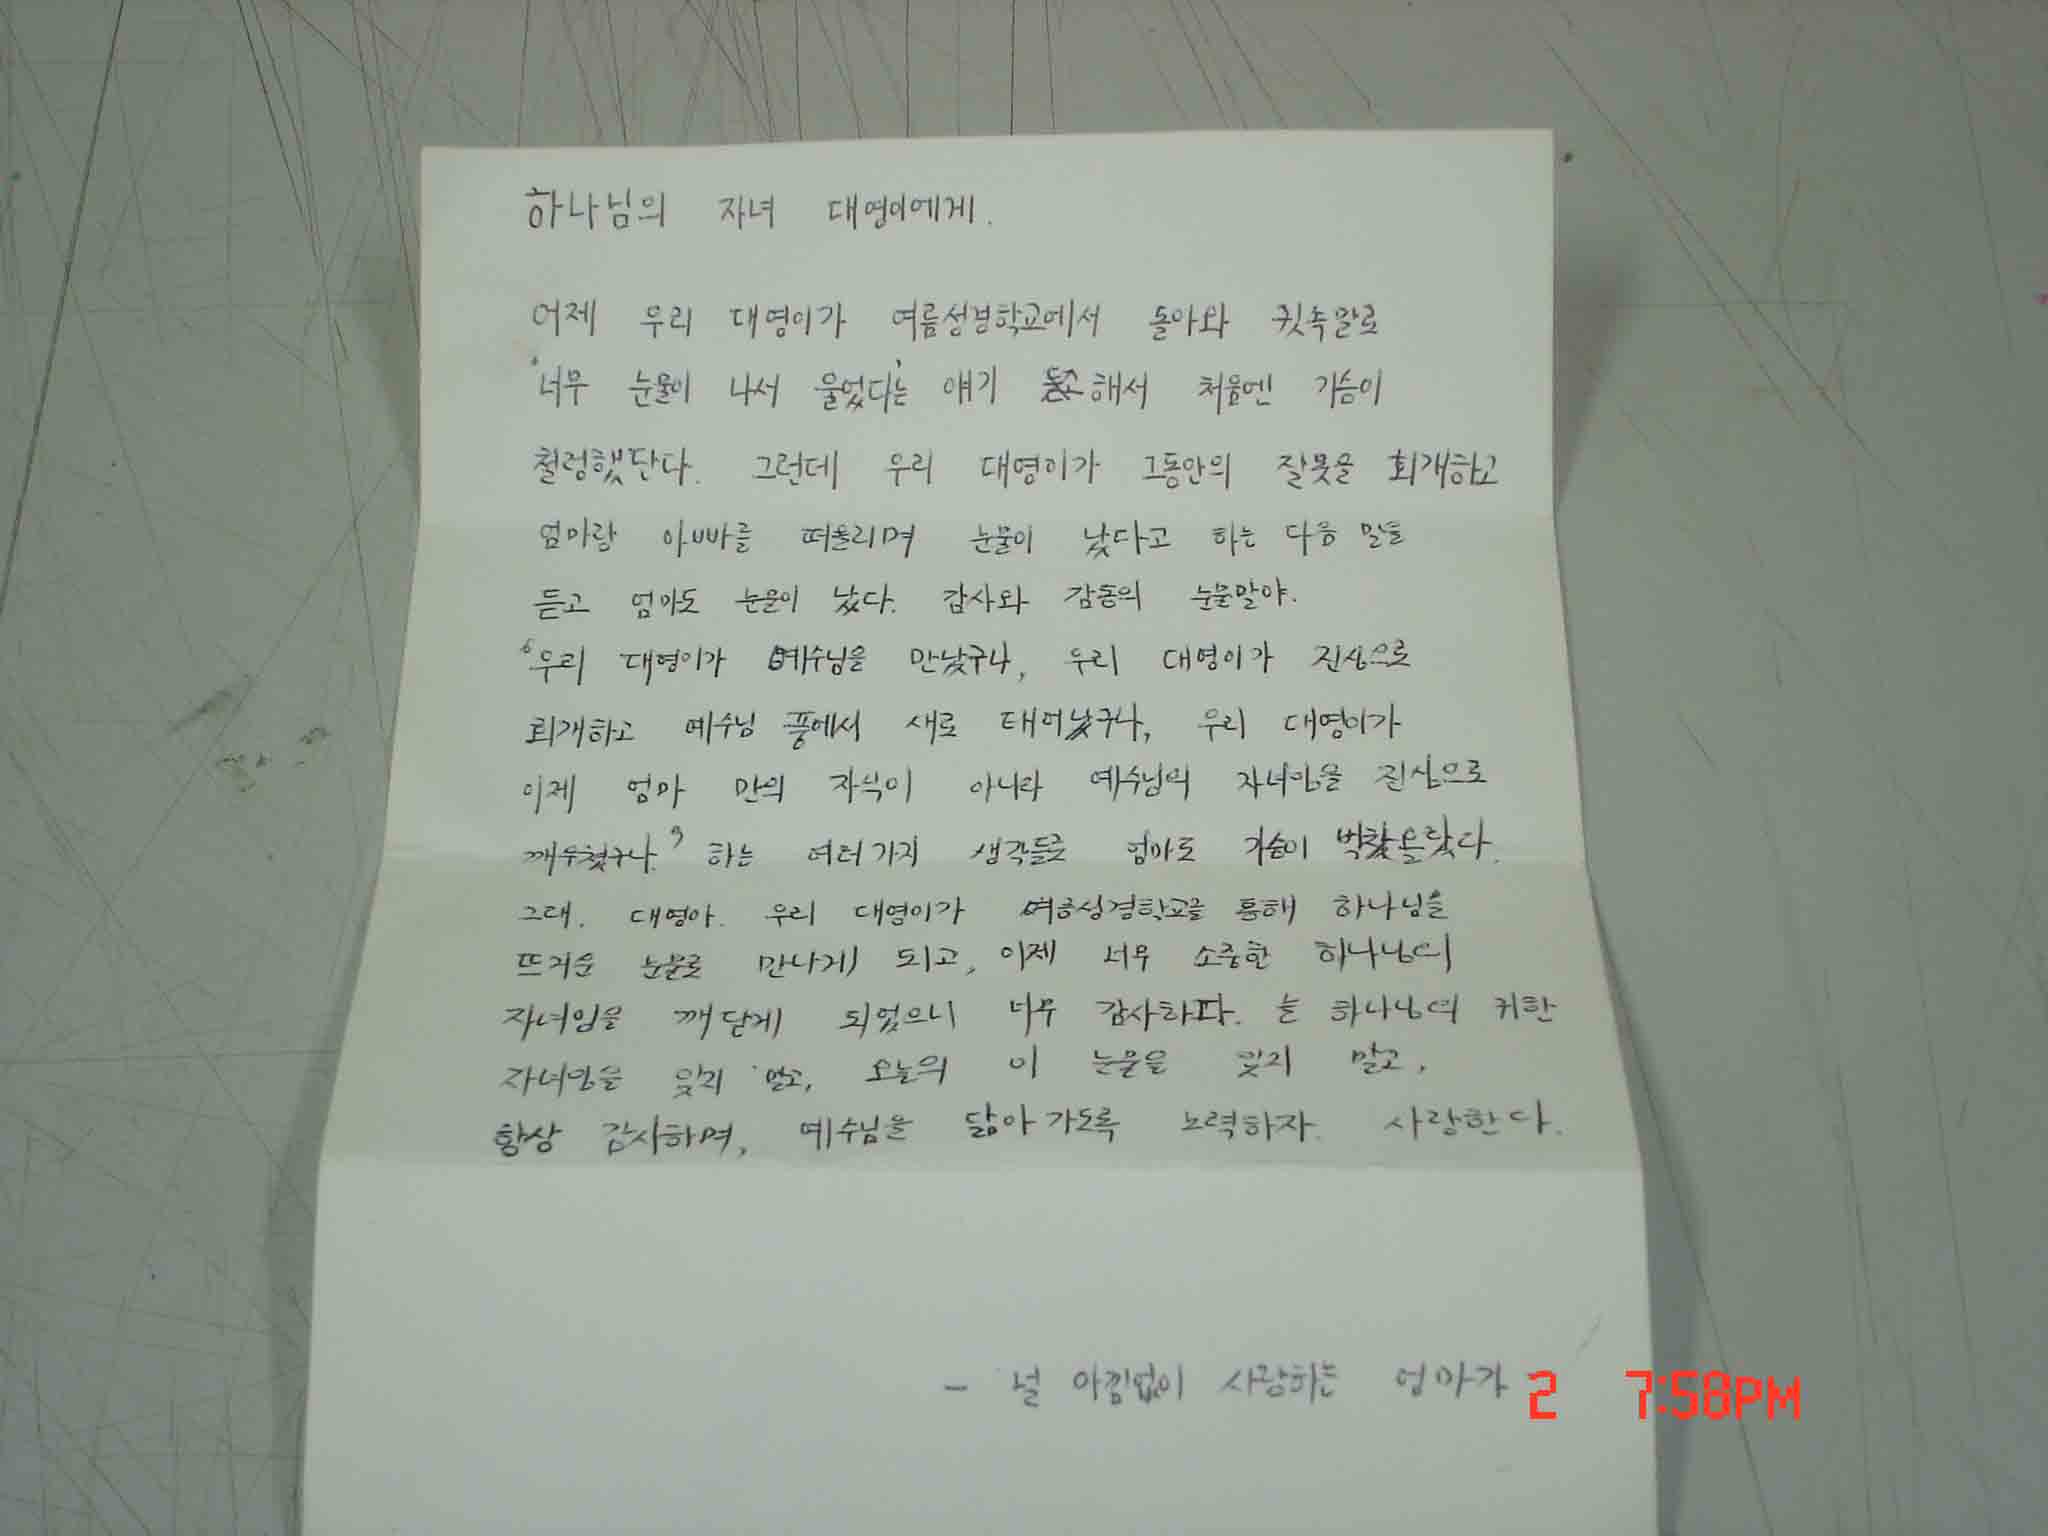 하나님의 자녀 대영이에게.
어제 우리 대영이가 여름성경학교에서 돌아와 귓속말로
"너무 눈물이 나서 울었다"는 얘기 해서 처음엔 가슴이
철렁했단다. 그런데 우리 대영이가 그동안의 잘못을 회개하고
엄마랑 아빠를 떠올리며 눈물이 났다고 하는 다음 말을
듣고 엄마도 눈물이 났다. 감사와 감동의 눈물말야.
"우리 대영이가 예수님을 만났구나, 우리 대영이가 진심으로
회개하고 예수님 품에서 새로 태어났구나, 우리 대영이가
이제 엄마 만의 자식이 아니라 예수님의 자녀임을 진심으로
깨우쳤구나." 하는 여러가지 생각들로 엄마도 가슴이 벅찼올랐다.
그래. 대영아. 우리 대영이가 여름성경학교를 통해 하나님을
뜨거운 눈물로 만나게 되고, 이제 너무 소중한 하나님의
자녀임을 깨닫게 되었으니 너무 감사하다. 늘 하나님의 귀한
자녀임을 잊지 말고, 오늘의 이 눈물을 잊지 말고,
항상 감사하며, 예수님을 닮아 가도록 노력하자. 사랑한다.
- 널 아낌없이 사랑하는 엄마가
2 7:58PM